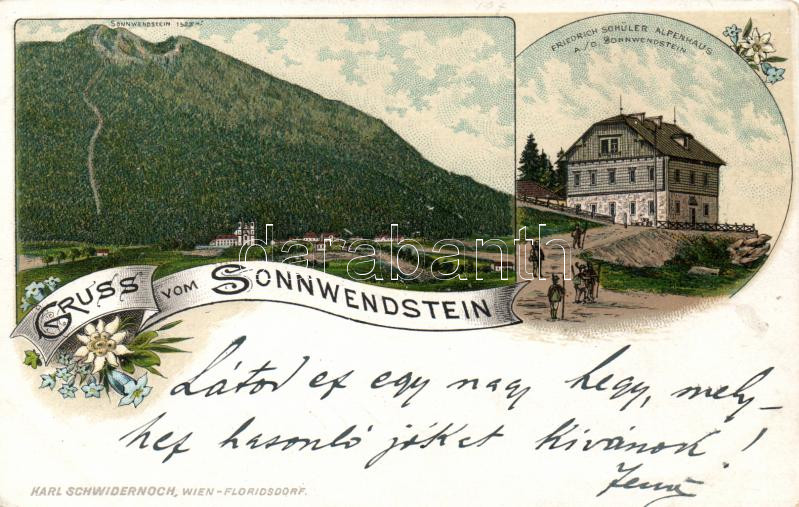 SONNWENDSTEIN 1523 M.
FRIEDRICH SCHÜLER ALPENHAUS
A./D. SONNWENDSTEIN
darabanth
GRUSS VOM SONNWENDSTEIN
Látod ez egy nagy hegy, mely-
hez hasonló jóket kivánok!
Jenő
KARL SCHWIDERNOCH, WIEN-FLORIDSDORF.